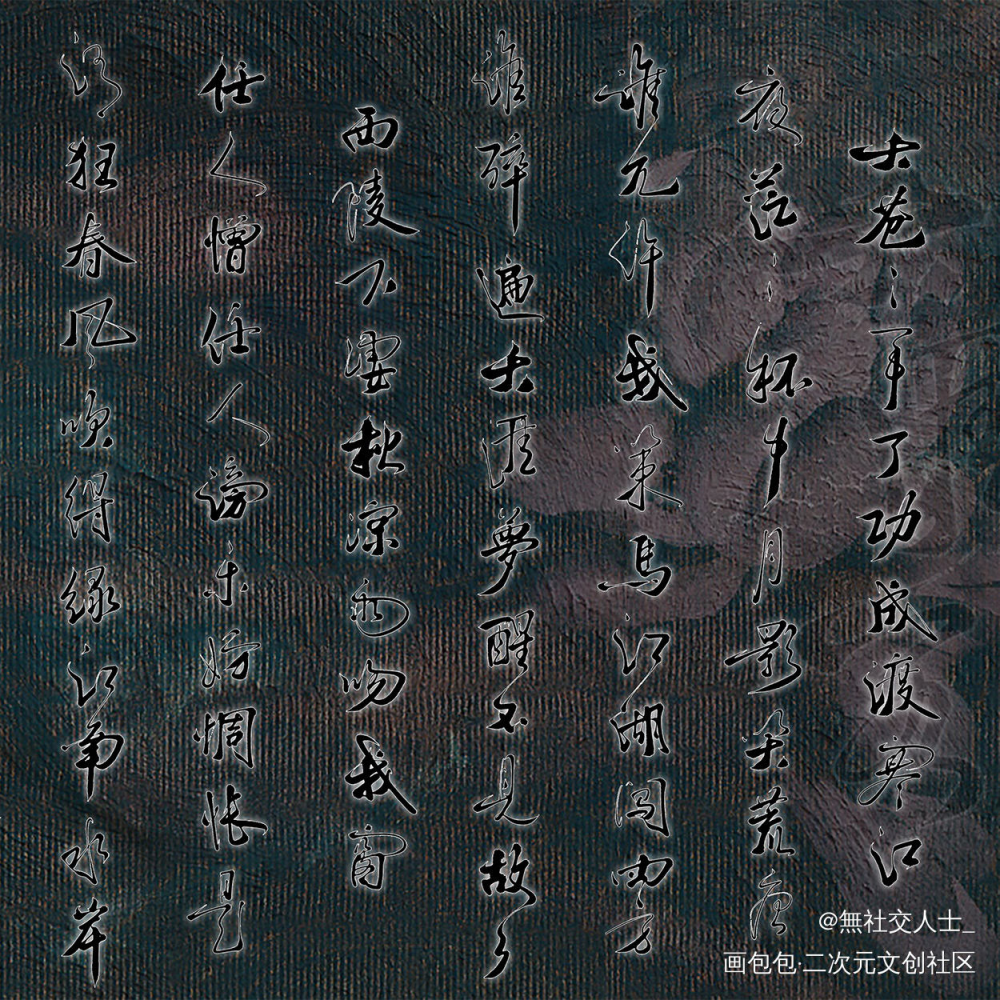 天苍苍事了功成渡寒江
夜茫茫杯中月影笑荒唐
谁允许我策马江湖闯四方
谁醉遍天涯梦醒不见故乡
西陵下凄秋凉雨吻我窗
任人憎任人谤未妨惆怅是
清狂春风吹得绿江南水岸
@無社交人士_
画包包·二次元文创社区